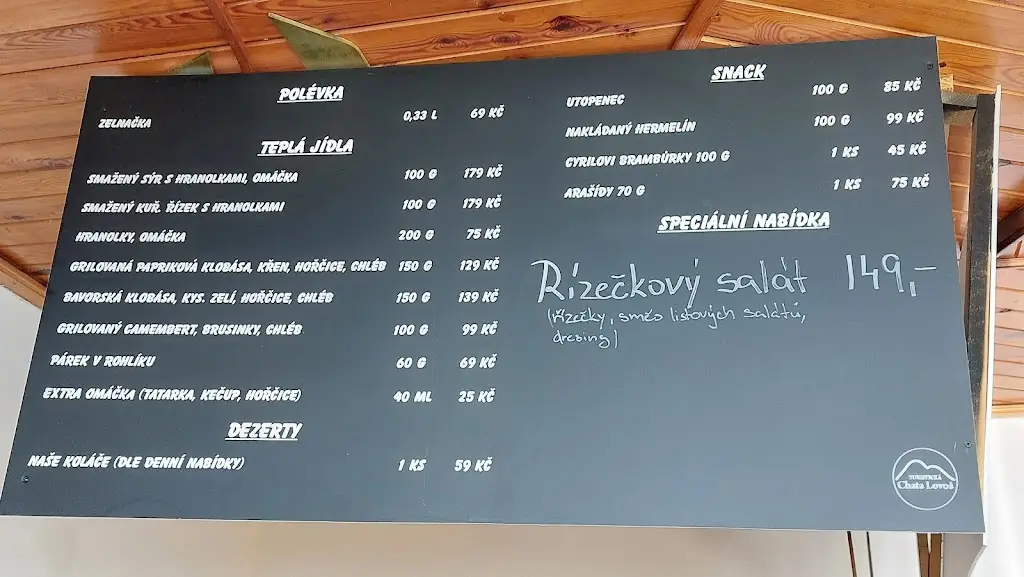 POLÉVKA
ZELNAČKA 0,33 L 69 KČ
TEPLÁ JÍDLA
SMAŽENÝ SÝR S HRANOLKAMI, OMÁČKA 100 G 179 KČ
SMAŽENÝ KUŘ. ŘÍZEK S HRANOLKAMI 100 G 179 KČ
HRANOLKY, OMÁČKA 200 G 75 KČ
GRILOVANÁ PAPRIKOVÁ KLOBÁSA, KŘEN, HOŘČICE, CHLÉB 150 G 129 KČ
BAVORSKÁ KLOBÁSA, KYS. ZELÍ, HOŘČICE, CHLÉB 150 G 139 KČ
GRILOVANÝ CAMEMBERT, BRUSINKY, CHLÉB 100 G 99 KČ
PÁREK V ROHLÍKU 60 G 69 KČ
EXTRA OMÁČKA (TATARKA, KEČUP, HOŘČICE) 40 ML 25 KČ
DEZERTY
NAŠE KOLÁČE (DLE DENNÍ NABÍDKY) 1 KS 59 KČ
SNACK
UTOPENEC 100 G 85 KČ
NAKLÁDANÝ HERMELÍN 100 G 99 KČ
CYRILOVI BRAMBŮRKY 100 G 1 KS 45 KČ
ARAŠÍDY 70 G 1 KS 75 KČ
SPECIÁLNÍ NABÍDKA
Řízečkový salát 149,-
(řízečky, směs listových salátů,
dresing)
TURISTICKÁ
Chata Lovoš